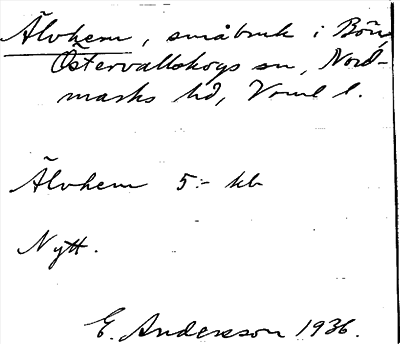 Älvhem, småbruk i Bön,
Östervallskogs sn, Nord-
marks hd, Vrml l.
Älvhem 5:- kb
Nytt.
E. Andersson 1936.